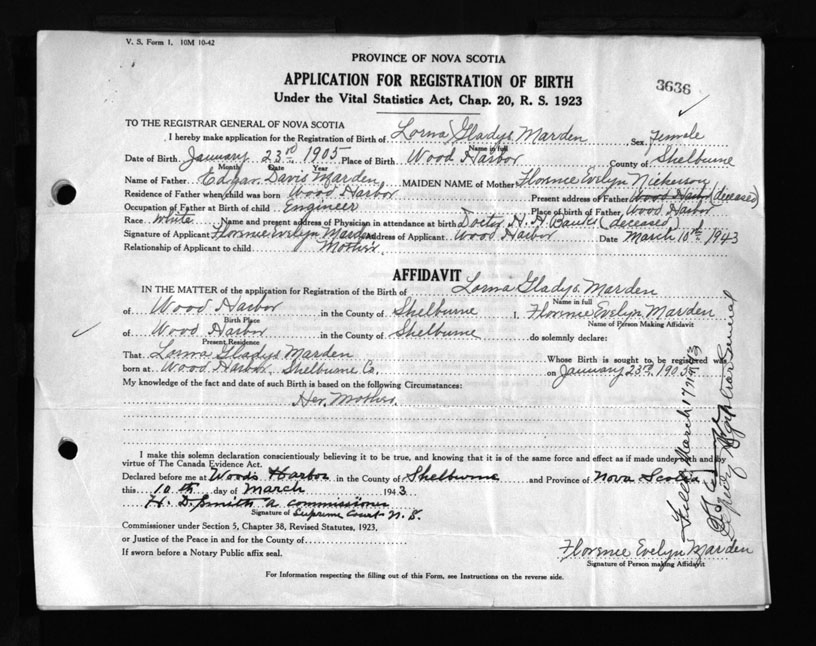 V. S. Form 1. 10M 10-42
PROVINCE OF NOVA SCOTIA
APPLICATION FOR REGISTRATION OF BIRTH
3636
Under the Vital Statistics Act, Chap. 20, R. S. 1923
TO THE REGISTRAR GENERAL OF NOVA SCOTIA
I hereby make application for the Registration of Birth of Lorna Gladys Marden Sex Female
Name in full
Date of Birth January 23rd 1905 Place of Birth Wood Harbor County of Shelburne
Month Date Year
Name of Father Edgar Davis Marden MAIDEN NAME of Mother Florence Evelyn Nickerson
Residence of Father when child was born Wood Harbor Present address of Father Wood Harbor (deceased)
Occupation of Father at Birth of child Engineer Place of birth of Father Wood Harbor
Race white Name and present address of Physician in attendance at birth Doctor H. H. Banks (deceased)
Signature of Applicant Florence Evelyn Marden Address of Applicant Wood Harbor Date March 10th 1943
Relationship of Applicant to child Mother
AFFIDAVIT
IN THE MATTER of the application for Registration of the Birth of Lorna Gladys Marden
Name in full
of Wood Harbor in the County of Shelburne I, Florence Evelyn Marden
Birth Place Name of Person Making Affidavit
of Wood Harbor in the County of Shelburne do solemnly declare:
Present Residence
That Lorna Gladys Marden Whose Birth is sought to be registered was
born at Wood Harbor, Shelburne Co. on January 23rd 1905
My knowledge of the fact and date of such Birth is based on the following Circumstances:
Her Mother.
I make this solemn declaration conscientiously believing it to be true, and knowing that it is of the same force and effect as if made under oath and by
virtue of The Canada Evidence Act.
Declared before me at Woods Harbor in the County of Shelburne and Province of Nova Scotia
this 10th day of March 1943
H. D. Smith a commissioner
Signature of Supreme Court N. S.
Commissioner under Section 5, Chapter 38, Revised Statutes, 1923,
or Justice of the Peace in and for the County of
If sworn before a Notary Public affix seal.
Florence Evelyn Marden
Signature of Person making Affidavit
For Information respecting the filling out of this Form, see Instructions on the reverse side.
Filed March 17 1943
Deputy Registrar General